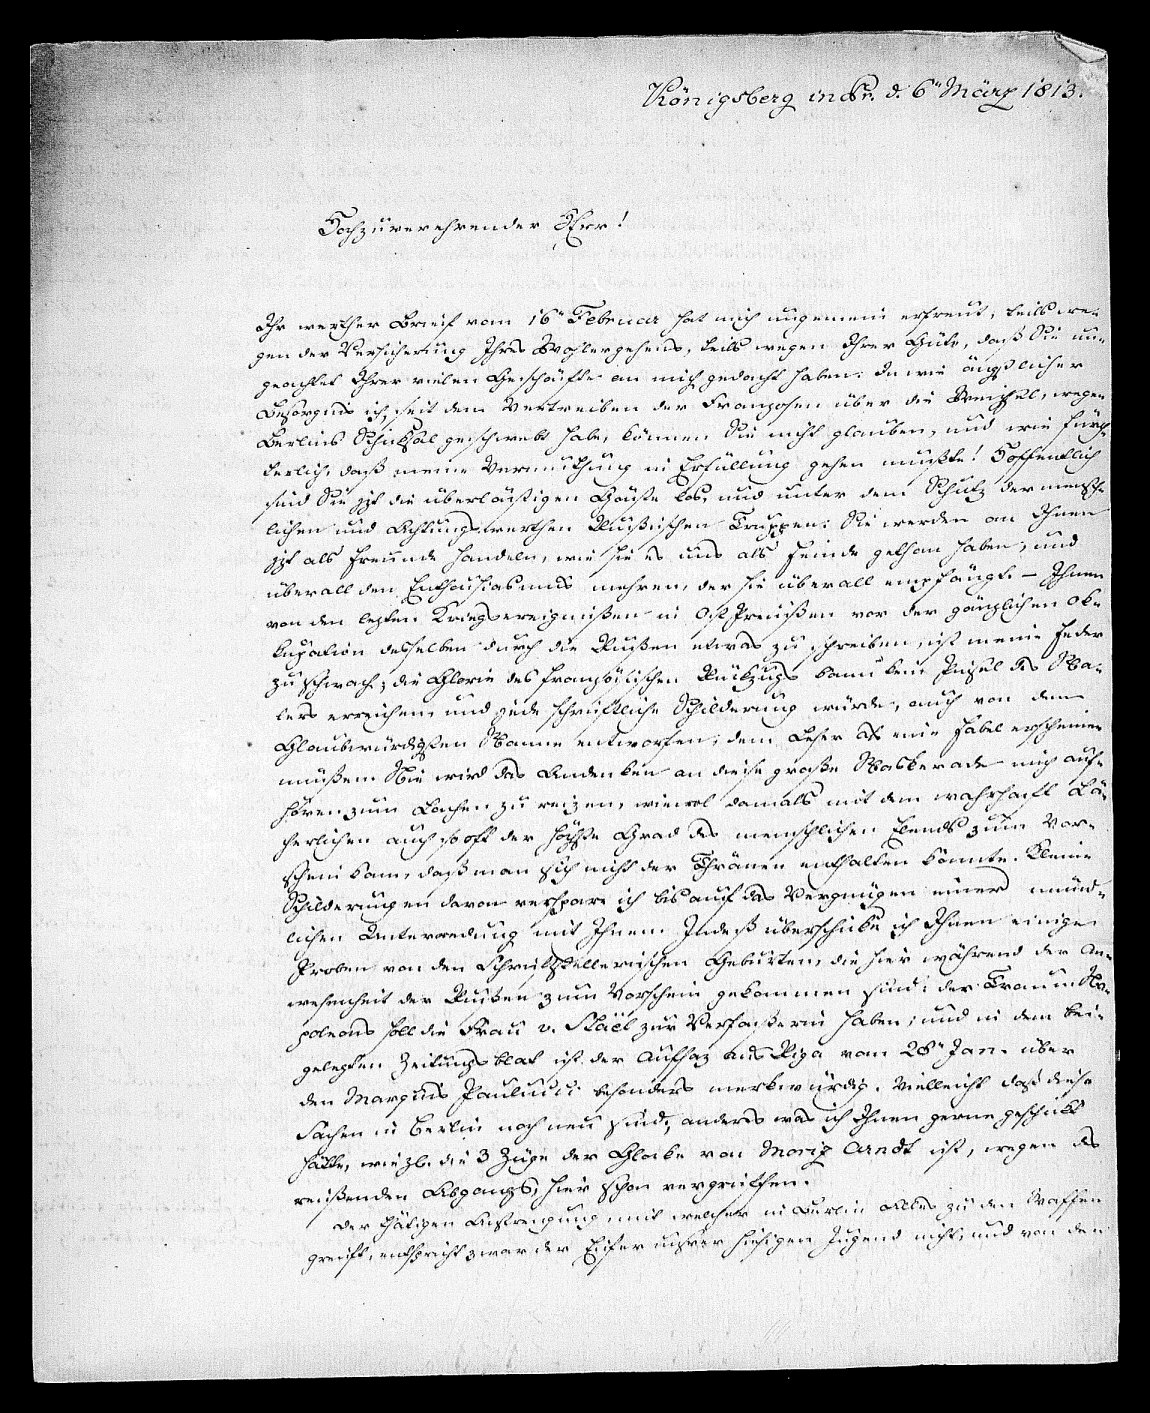 Königsberg in Pr. d. 6n März 1813.
Hochzuverehrender Herr!
Ihr werther Brief vom 16n Februar hat mich ungemein erfreut, teils we-
gen der Versicherung Ihres Wohlergehens, teils wegen Ihrer Güte, daß Sie un-
geachtet Ihrer vielen Geschäfte an mich gedacht haben. In wie ängstlicher
Besorgnis ich, seit dem Vertreiben der Franzosen über die Weichsel, wegen
Berlins Schicksal geschwebt habe, können Sie nicht glauben, und wie fürch-
terlich, daß meine Vermuthung in Erfüllung gehen mußte! Hoffentlich
sind Sie jzt die überlästigen Gäste los, und unter dem Schutz der mensch-
lichen und Achtungswerthen Russischen Truppen. Sie werden an Ihnen
jzt als Freunde handeln, wie sie es uns als Feinde gethan haben, und
überall den Enthousiasmus mehren, der sie überall empfängt. — Ihnen
von den lezten Kriegsereignißen in OstPreußen vor der gänzlichen Ok-
kupation desselben durch die Rußen etwas zu schreiben, ist meine Feder
zu schwach; die Glorie des französischen Rückzugs kann kein Pinsel des Ma-
lers erreichen, und jede schriftliche Schilderung würde, auch von dem
Glaubwürdigsten Manne entworfen, dem Leser als eine Fabel erscheinen
müßen. Nie wird das Andenken an diese große Maskerade mich auf-
hören zum Lachen zu reizen, wiewol damals mit dem wahrhaft Lä-
cherlichen auch so oft der höchste Grad des menschlichen Elends zum Vor-
schein kam, daß man sich nicht der Thränen enthalten konnte. Kleine
Schilderungen davon verspare ich bis auf das Vergnügen einer münd-
lichen Unterredung mit Ihnen. Indeß überschicke ich Ihnen einige
Proben von den Schriftstellerischen Geburten, die hier während der An-
wesenheit der Rußen zum Vorschein gekommen sind: der Traum Na-
poleons soll die Frau v. Staël zur Verfaßerin haben; und in dem bei-
gelegten Zeitungsblat ist der Aufsaz aus Riga vom 28n Jan. über
den Marquis Paulucci besonders merkwürdig. Vielleicht daß diese
Sachen in Berlin noch neu sind; anders was ich Ihnen gerne geschickt
hätte, wie zb. die 3 Züge der Glocke von Moriz Arndt ist, wegen des
reißenden Abgangs, hier schon vergriffen.
Der thätigen Anstrengung, mit welcher in Berlin Alles zu den Waffen
greift, entspricht zwar der Eifer unsrer hiesigen Jugend nicht, und von den